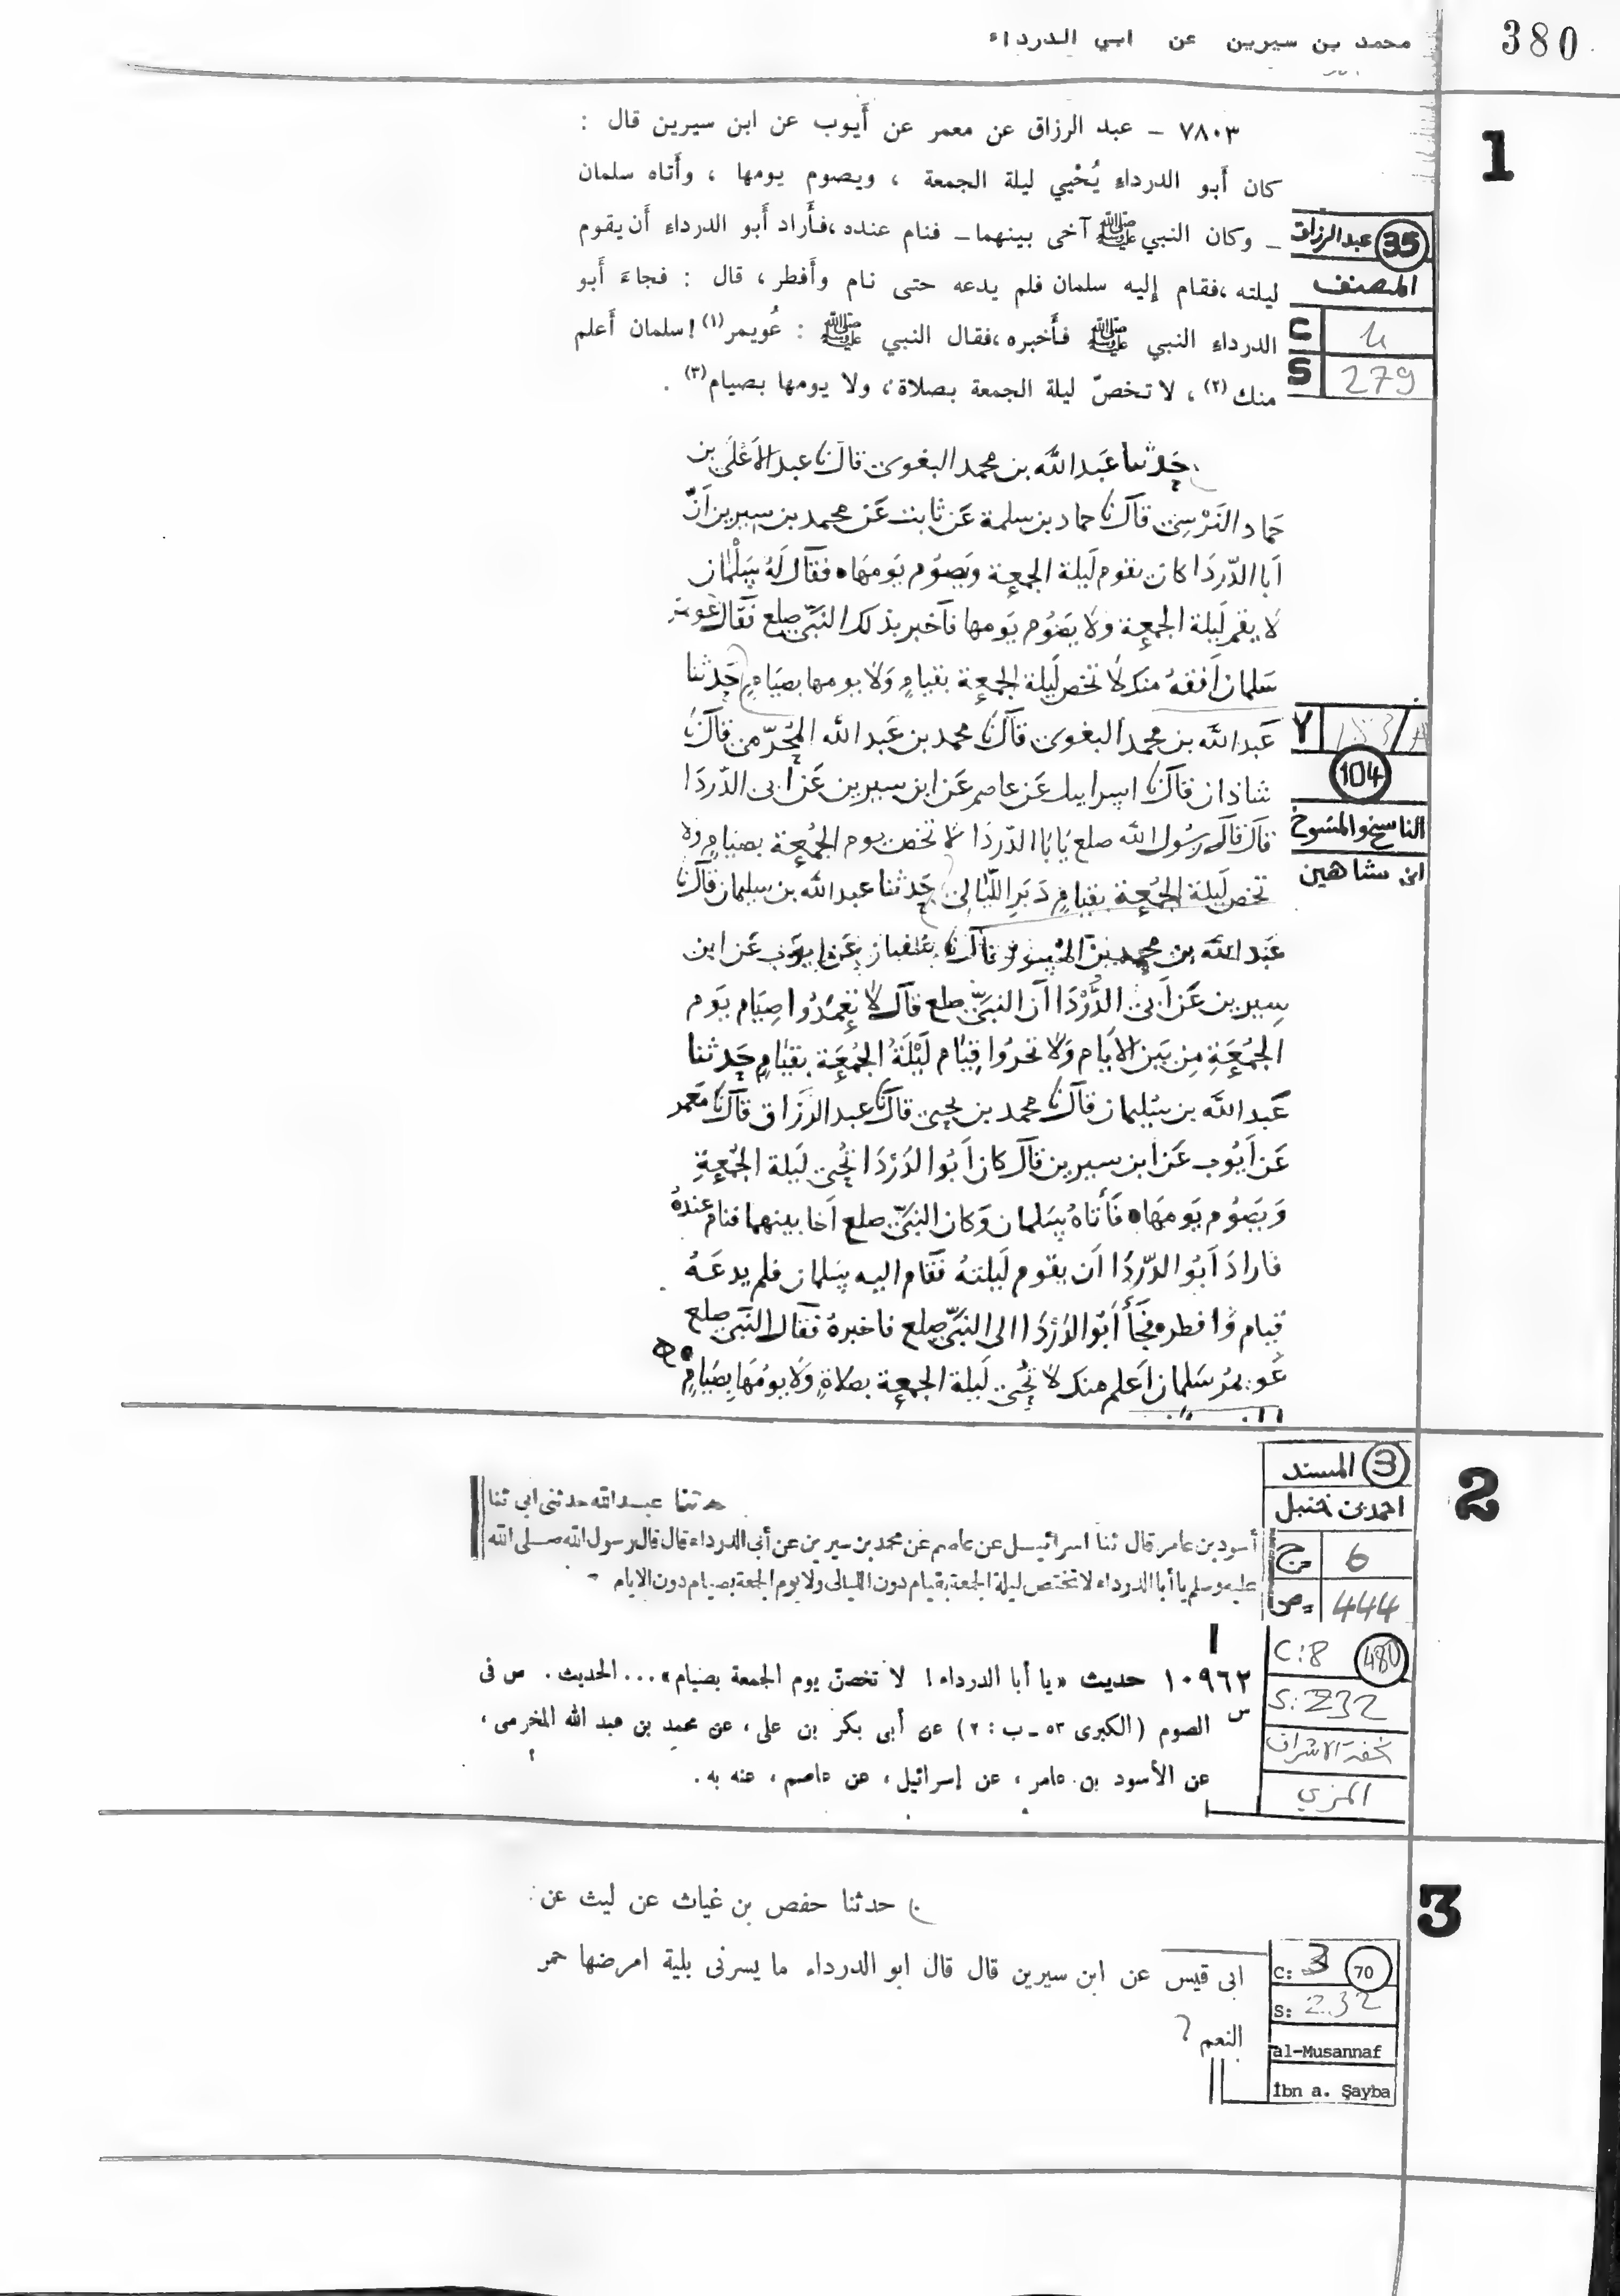 محمد بن سيرين عن ابي الدرداء
380
1
٧٨٠٣ - عبد الرزاق عن معمر عن أَيوب عن ابن سيرين قال :
كان أَبو الدرداءِ يُحْيي ليلة الجمعة ، ويصوم يومها ، وأَتاه سلمان
- وكان النبي ﷺ آخى بينهما - فنام عنده، فأَراد أَبو الدرداءِ أَن يقوم
ليلته، فقام إِليه سلمان فلم يدعه حتى نام وأَفطر، قال : فجاءَ أَبو
الدرداءِ النبي ﷺ فأَخبره، فقال النبي ﷺ : عُويمر(١)! سلمان أَعلم
منك(٢) ، لا تخصّ ليلة الجمعة بصلاة، ولا يومها بصيام(٣) .
35 عبد الرزاق
المصنف
C 4
S 279
حَدثنا عَبد الله بن محمد البغوى قال نا عبد الأعْلى بن
حَماد النَرْسِى قال نا حماد بن سلمة عَن ثابت عَن محمد بن سيرين اَنّ
اَبا الدّردَا كان يقوم لَيلة الجمعة وَيصوُم يَومهَا ه فقال لَهُ سَلْمان
لا يقم لَيلة الجمعة ولا يَصوُم يَومها فاَخبر بذلك النبَىّ صلع فقال عُويمر
سَلمان اَفقهُ منك لا تخص لَيلة الجمعة بقيامٍ وَلا يومها بصيَامٍ حَدثنا
عَبد الله بن محمد البغوى قال نا محمد بن عَبد الله المُخرّمى قال نا
شاذان قال نا اسراييل عَن عاصم عَن ابن سيرين عَن ابى الدّردَا
قال قال رسُول الله صلع يَابَا الدّردَا لا تخص يوم الجمُعة بصيَامٍ ولا
تخص لَيلة الجمُعة بقيَامٍ دَبَرِ اللّيَالى حَدثنا عبد الله بن سليمان قال نا
Y
104
الناسخ والمنسوخ
ابن شاهين
عَبد الله بن محمد بن المسور قال نا سفيان عَن ايوَب عَن ابن
سِيرين عَن اَبى الدَّرْدَا اَن النبَىّ صلع قال لا تعمدُوا صِيَام يَوم
الجُمُعَةِ مِن بَين الايَام وَلا تحرُوا قيَام لَيْلَةُ الجُمُعَة بقيَامٍ حَدثنا
عَبد الله بن سُليمان قال نا محمد بن يحيى قال نا عبد الرزَاق قال نا مَعمر
عَن اَيُوب عَن ابن سيرين قال كان اَبُوا الدَردَا تحُيى لَيلة الجُمُعةِ
وَيَصوُم يَومهَا ه فَأتاهُ سَلمان وَكان النبَىّ صلع اَخا بينهما فنام عندهُ
فارادَ اَبُوا الدّردَا اَن يقوم لَيلتهُ فقام اليه سَلمان فلم يدعَهُ
قيام وَافطره فجَأ اَبُوا الدَردَا الى النبَىّ صلع فاخبرهُ فقال النبَى صلع
عَويمرُ سَلمان اَعلم منك لا تحُيى لَيلة الجمعة بصَلاةٍ وَلا يوُمَها بِصَيَامٍ
2
3 المسند
احمد بن حنبل
ج 6
ص 444
حدثنا عبد الله حدثنى ابى ثنا
أسود بن عامر قال ثنا اسرائيل عن عاصم عن محمد بن سيرين عن أبى الدرداء قال قال رسول الله صلى الله
عليه وسلم يا أبا الدرداء لا تختص ليلة الجمعة بقيام دون الليالى ولا يوم الجمعة بصيام دون الايام
C:8 480
S:232
تحفة الاشراف
المزي
١٠٩٦٢ حديث «يا أبا الدرداء! لا تخصنّ يوم الجمعة بصيام»... الحديث. س فى
س الصوم (الكبرى ٥٣ ـ ب : ٢) عن أبى بكر بن على، عن محمد بن عبد الله المخرمى،
عن الأسود بن عامر، عن إسرائيل، عن عاصم، عنه به.
3
حدثنا حفص بن غياث عن ليث عن
ابى قيس عن ابن سيرين قال قال ابو الدرداء ما يسرنى بلية امرضها حمر
النعم ؟
C: 3 70
S: 232
al-Musannaf
İbn a. Şayba